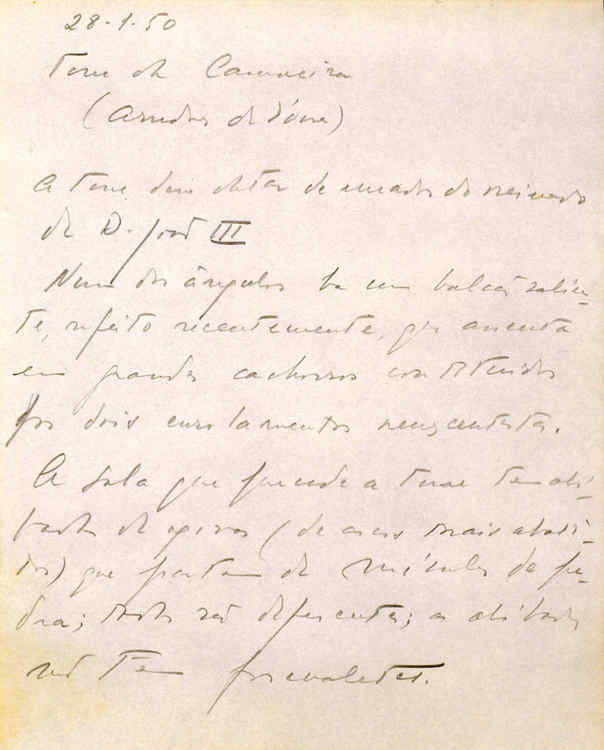 28-1-50
Torre da Carnoeira
(Arredores de Évora)
A torre deve datar de meados do reinado
de D. João III
Num dos ângulos há um balcão salien-
te, refeito recentemente, que assenta
em grandes cachorros constituidos
por dois enrolamentos renascentistas.
A sala que prende a torre tem abó-
badas de ogivas (de arcos mais abati-
dos) que partem de mísulas de pe-
dra; todas são diferentes; as abóbadas
não têm formaletes.